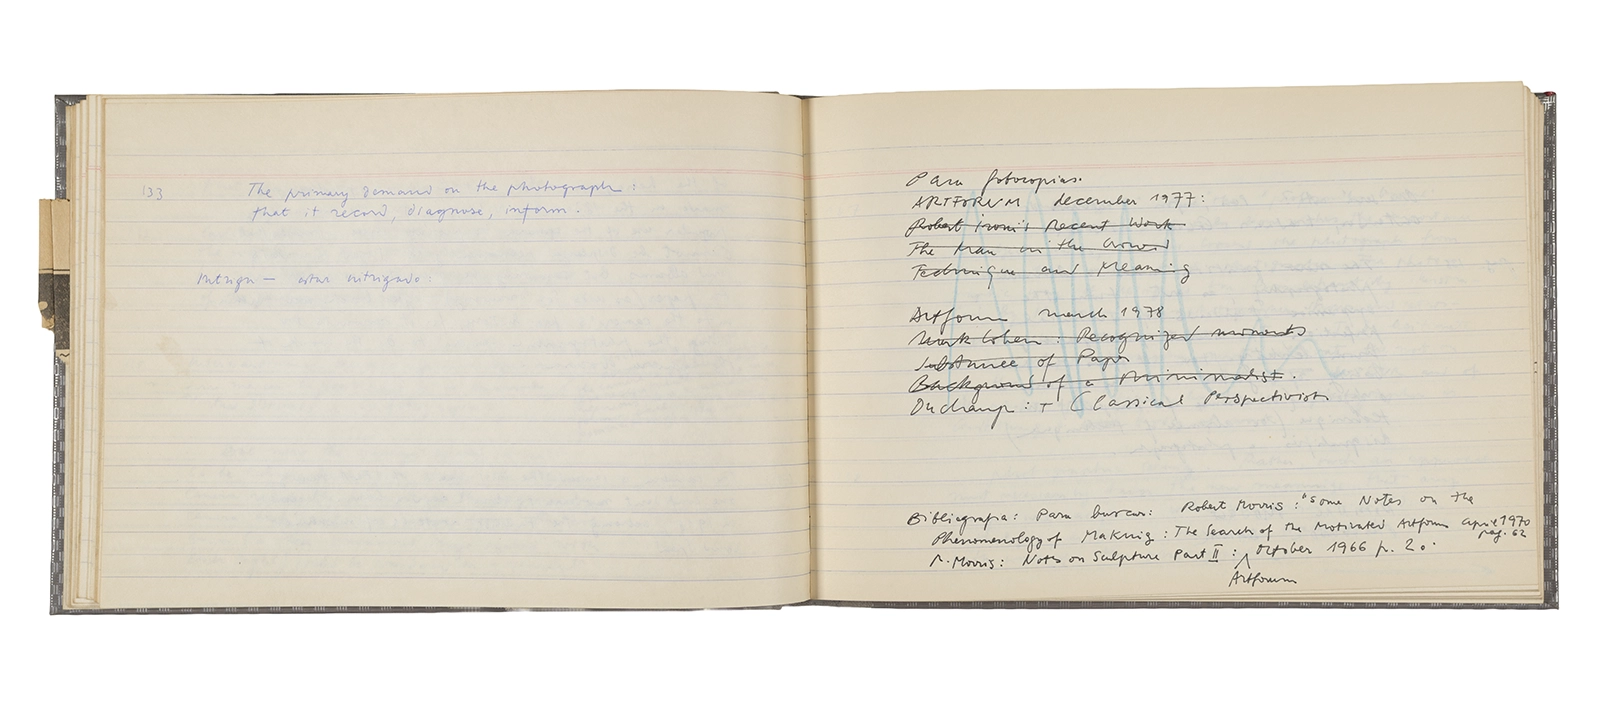 133 The primary demand on the photograph:
that it record, diagnose, inform.
Intriga — estar intrigado:
Para fotocopias.
ARTFORUM december 1977:
Robert Irwin's Recent Work
The Man in the Crowd
Technique and Meaning
Artforum march 1978
Mark Cohen: Recognized moments
Substance of Paper
Background of a Minimalist.
Duchamp: + Classical Perspectivist
Bibliografia: Para buscar: Robert Morris: "Some Notes on the
Phenomenology of Making: The Search of the Motivated Artforum april 1970
pag. 62
R. Morris: Notes on Sculpture Part II: October 1966 p. 20.
Artforum